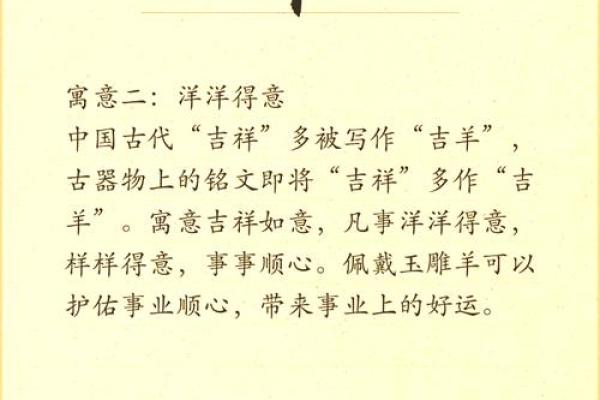 寓意二：洋洋得意
中国古代“吉祥”多被写作“吉羊”，
古器物上的铭文即将“吉祥”多作“吉
羊”。寓意吉祥如意，凡事洋洋得意，
样样得意，事事顺心。佩戴玉雕羊可以
护佑事业顺心，带来事业上的好运。